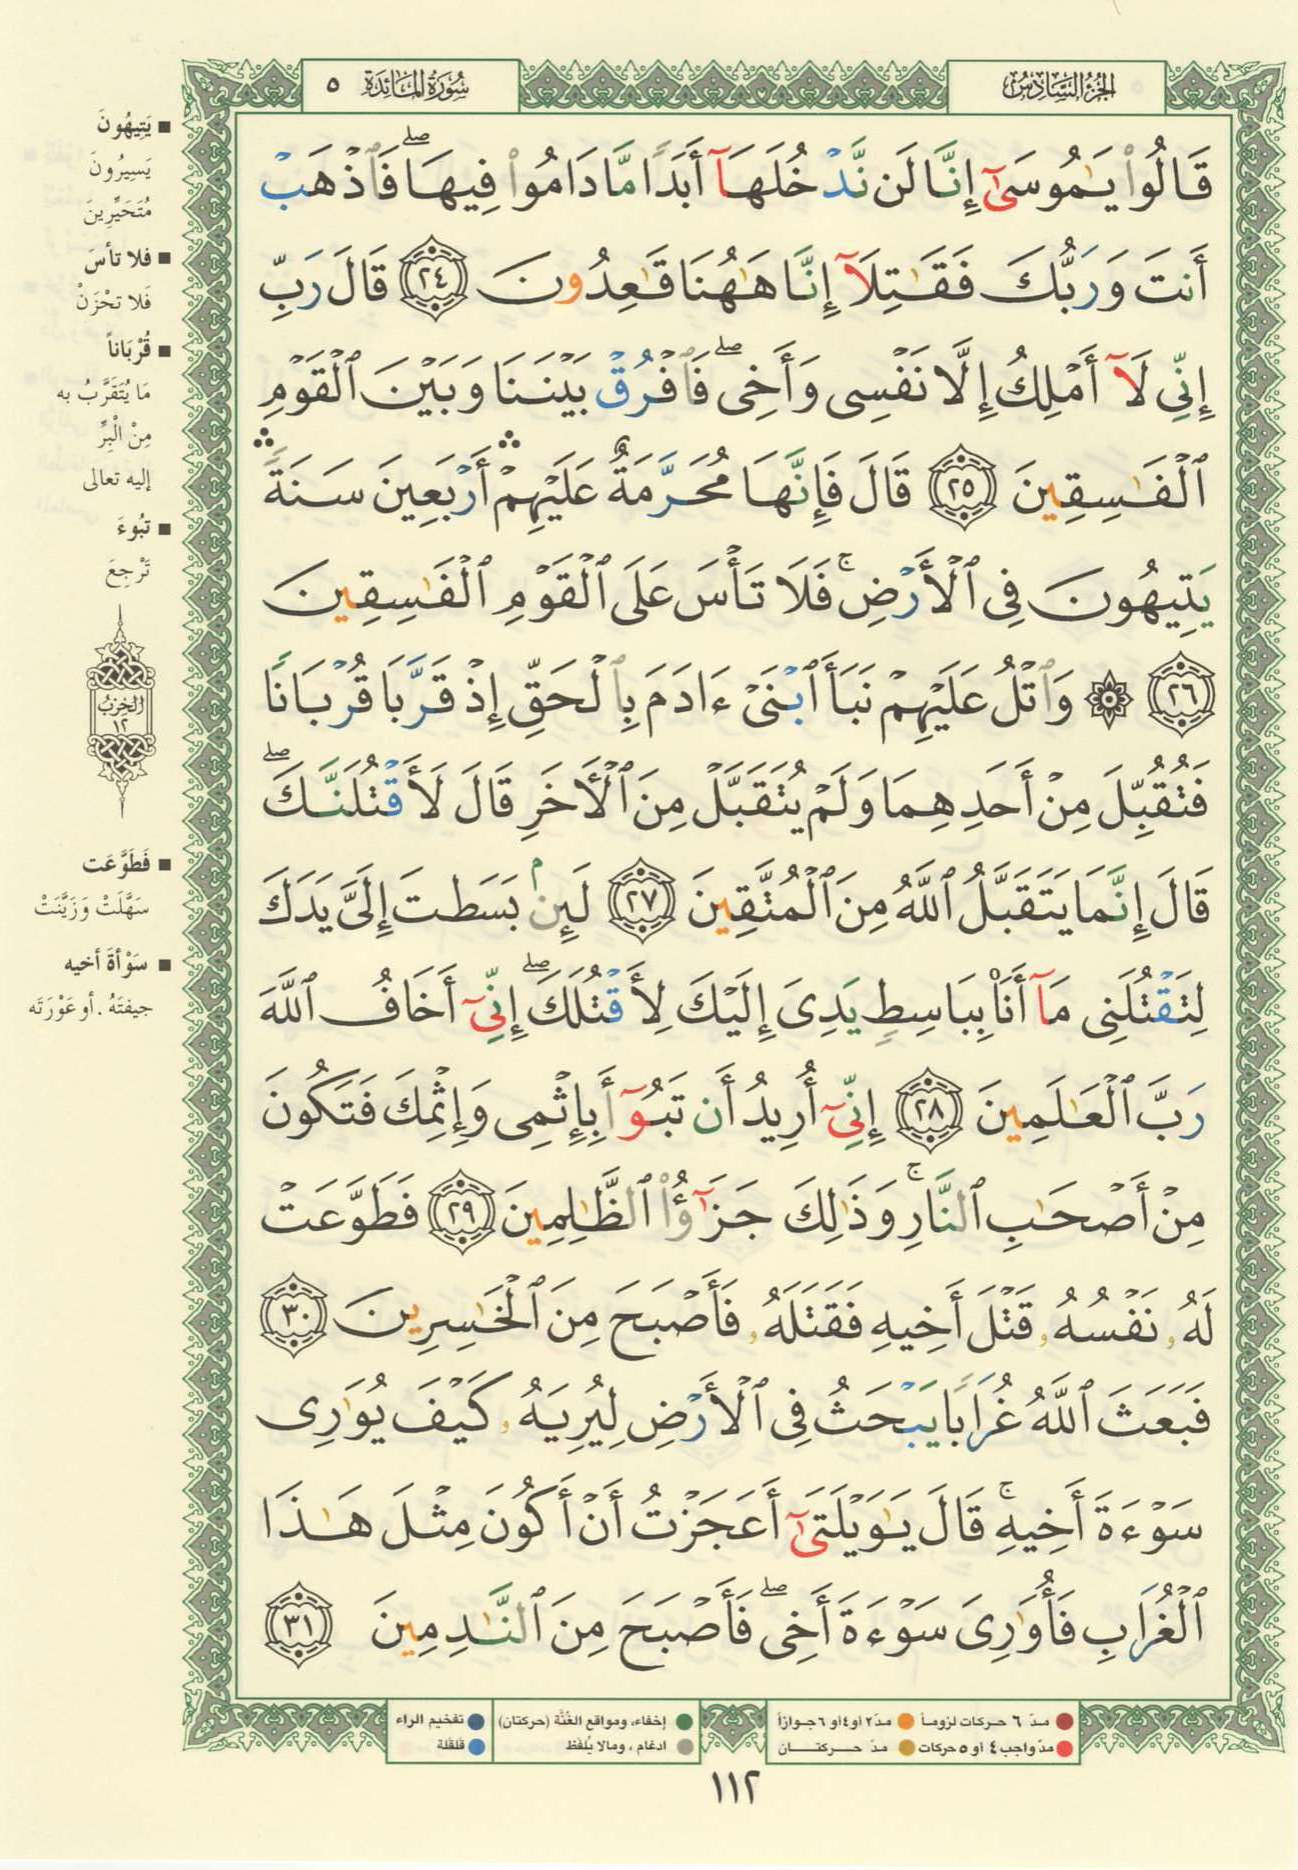 الجزء السادس
سورة المائدة ٥
قَالُوا۟ يَـٰمُوسَىٰٓ إِنَّا لَن نَّدْخُلَهَآ أَبَدًا مَّا دَامُوا۟ فِيهَا ۖ فَٱذْهَبْ
أَنتَ وَرَبُّكَ فَقَـٰتِلَآ إِنَّا هَـٰهُنَا قَـٰعِدُونَ ٢٤ قَالَ رَبِّ
إِنِّى لَآ أَمْلِكُ إِلَّا نَفْسِى وَأَخِى ۖ فَٱفْرُقْ بَيْنَنَا وَبَيْنَ ٱلْقَوْمِ
ٱلْفَـٰسِقِينَ ٢٥ قَالَ فَإِنَّهَا مُحَرَّمَةٌ عَلَيْهِمْ ۛ أَرْبَعِينَ سَنَةً ۛ
يَتِيهُونَ فِى ٱلْأَرْضِ ۚ فَلَا تَأْسَ عَلَى ٱلْقَوْمِ ٱلْفَـٰسِقِينَ
٢٦ ۞ وَٱتْلُ عَلَيْهِمْ نَبَأَ ٱبْنَىْ ءَادَمَ بِٱلْحَقِّ إِذْ قَرَّبَا قُرْبَانًا
فَتُقُبِّلَ مِنْ أَحَدِهِمَا وَلَمْ يُتَقَبَّلْ مِنَ ٱلْـَٔاخَرِ قَالَ لَأَقْتُلَنَّكَ ۖ
قَالَ إِنَّمَا يَتَقَبَّلُ ٱللَّهُ مِنَ ٱلْمُتَّقِينَ ٢٧ لَئِنۢ بَسَطتَ إِلَىَّ يَدَكَ
لِتَقْتُلَنِى مَآ أَنَا۠ بِبَاسِطٍ يَدِىَ إِلَيْكَ لِأَقْتُلَكَ ۖ إِنِّىٓ أَخَافُ ٱللَّهَ
رَبَّ ٱلْعَـٰلَمِينَ ٢٨ إِنِّىٓ أُرِيدُ أَن تَبُوٓأَ بِإِثْمِى وَإِثْمِكَ فَتَكُونَ
مِنْ أَصْحَـٰبِ ٱلنَّارِ ۚ وَذَٰلِكَ جَزَٰٓؤُا۟ ٱلظَّـٰلِمِينَ ٢٩ فَطَوَّعَتْ
لَهُۥ نَفْسُهُۥ قَتْلَ أَخِيهِ فَقَتَلَهُۥ فَأَصْبَحَ مِنَ ٱلْخَـٰسِرِينَ ٣٠
فَبَعَثَ ٱللَّهُ غُرَابًا يَبْحَثُ فِى ٱلْأَرْضِ لِيُرِيَهُۥ كَيْفَ يُوَٰرِى
سَوْءَةَ أَخِيهِ ۚ قَالَ يَـٰوَيْلَتَىٰٓ أَعَجَزْتُ أَنْ أَكُونَ مِثْلَ هَـٰذَا
ٱلْغُرَابِ فَأُوَٰرِىَ سَوْءَةَ أَخِى ۖ فَأَصْبَحَ مِنَ ٱلنَّـٰدِمِينَ ٣١
■ يَتِيهُونَ
يَسِيرُونَ
مُتَحَيِّرِينَ
■ فلا تأسَ
فَلا تحْزَنْ
■ قُرْبَاناً
مَا يُتَقَرَّبُ به
مِنْ الْبِرِّ
إليه تعالى
■ تَبُوءَ
تَرْجِعَ
الحزب
١٢
■ فَطَوَّعَت
سَهَّلَتْ وَزَيَّنَتْ
■ سَوْأةَ أخيه
جيفتَهُ . أو عَوْرَتَه
مدّ ٦ حركات لزوماً مدّ ٢ او ٤ او ٦ جوازاً
مدّ واجب ٤ أو ٥ حركات مدّ حركتان
إخفاء، ومواقع الغُنَّة (حركتان) تفخيم الراء
ادغام ، ومالا يُلفَظ قلقلة
١١٢